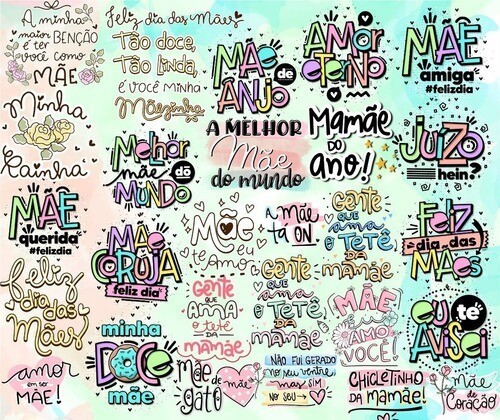 A minha
maior BENÇÃO
é ter
você como
MÃE
Feliz dia das Mães
Tão doce,
Tão linda,
e você minha
Mãezinha
MÃE
de
ANJO
AMOR
eterno
MÃE
amiga
#felizdia
Minha
Rainha
Melhor
mãe do
MUNDO
A MELHOR
Mãe
do mundo
Mamãe
DO
ano!
JUÍZO
hein?
MÃE
querida
#felizdia
MÃE
CORUJA
feliz dia
Mãe
eu te amo
a mãe
tá ON
Gente
QUE
ama
O TETÊ
DA
MAMÃE
FELIZ
dia das
MÃES
Feliz
dia das
Mães
Gente
QUE
AMA
o tetê
da
MAMÃE
Gente
QUE
ama
o TETÊ
DA
MAMÃE
MÃE
eu
AMO
VOCÊ!
eu te
AVISEI
amor
em ser
MÃE!
minha
DOCE
mãe
Mãe
de
gato
mãe
de
NÃO FUI GERADO
no seu ventre
mas SIM
NO seu
CHICLETINHO
DA mamãe!
Mãe
de
Coração